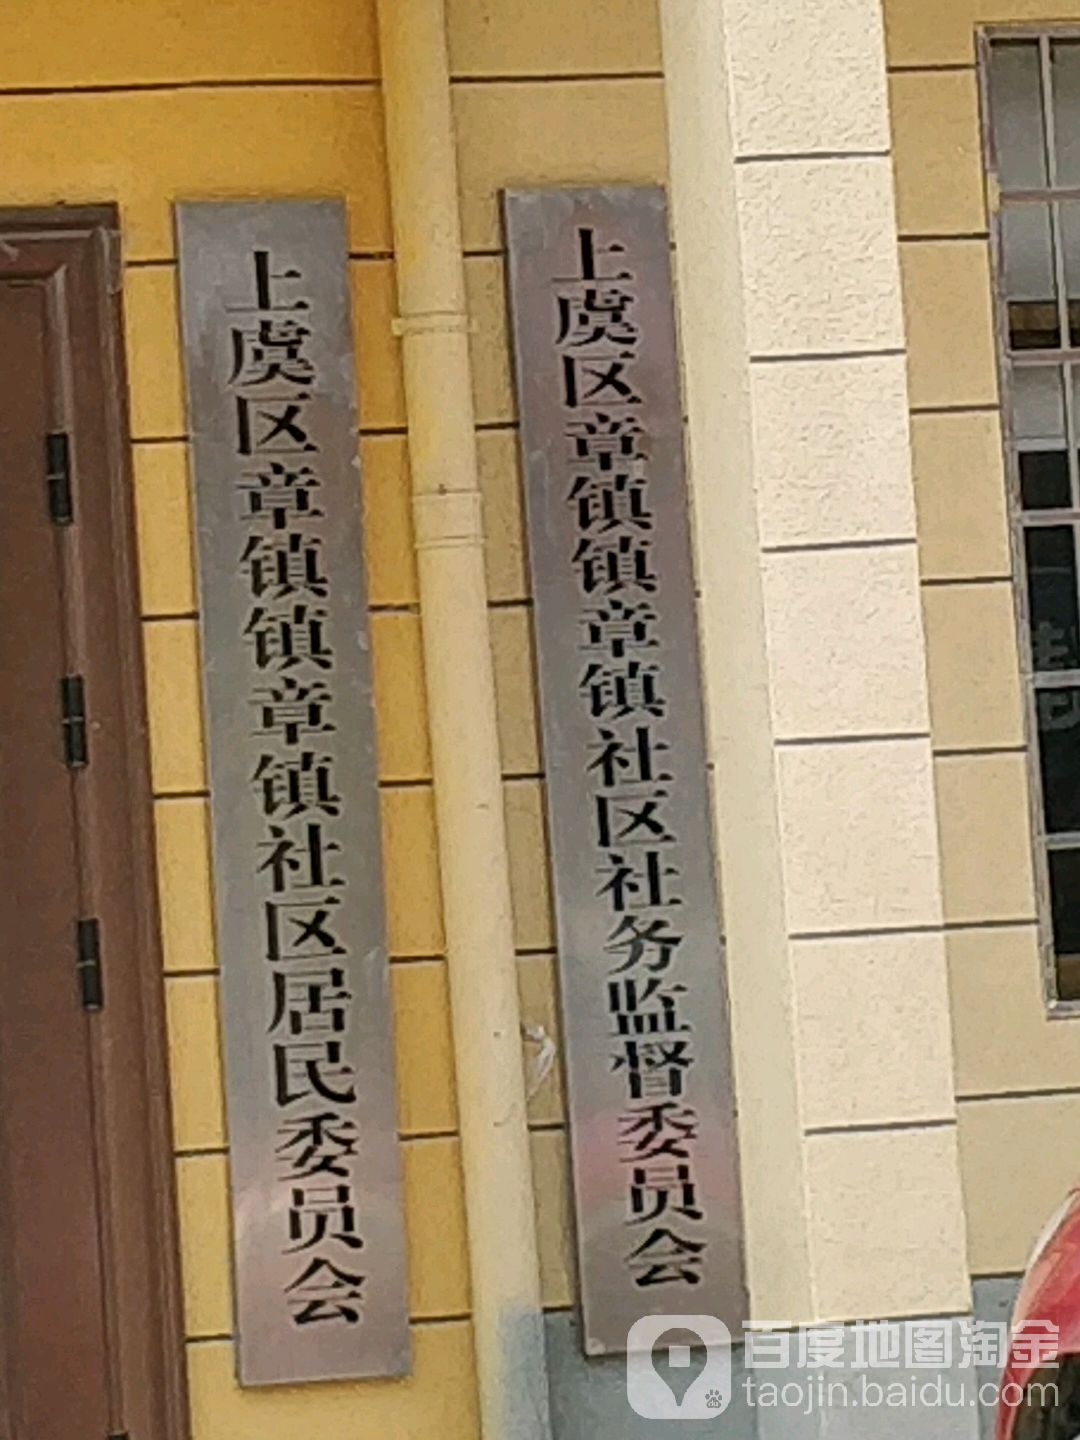 上虞区章镇镇章镇社区居民委员会
上虞区章镇镇章镇社区社务监督委员会
百度地图淘金
taojin.baidu.com